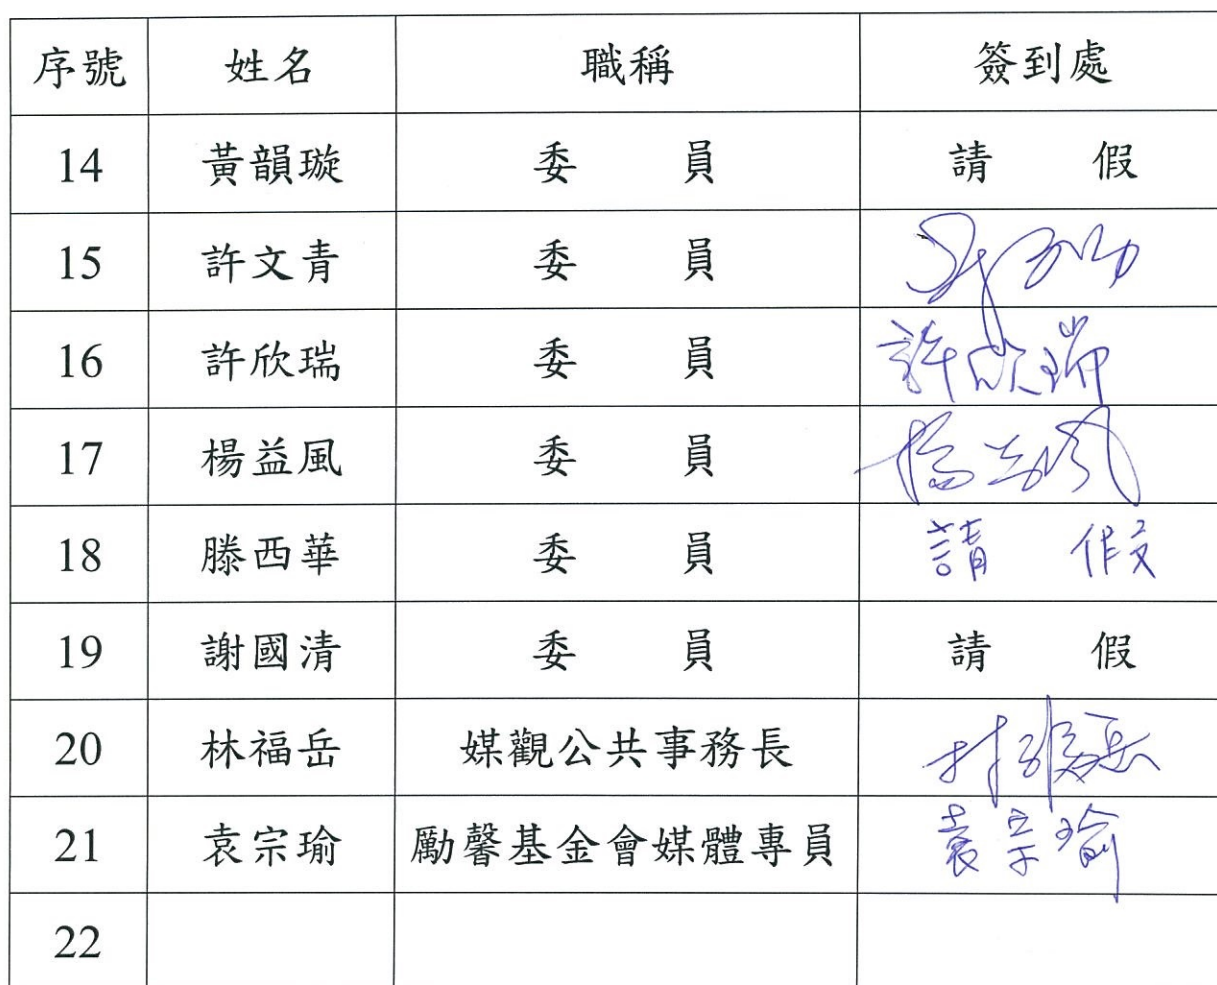 序號 姓名 職稱 簽到處
14 黃韻璇 委員 請假
15 許文青 委員
16 許欣瑞 委員 許欣瑞
17 楊益風 委員 楊益風
18 滕西華 委員 請假
19 謝國清 委員 請假
20 林福岳 媒觀公共事務長 林福岳
21 袁宗瑜 勵馨基金會媒體專員 袁宗瑜
22